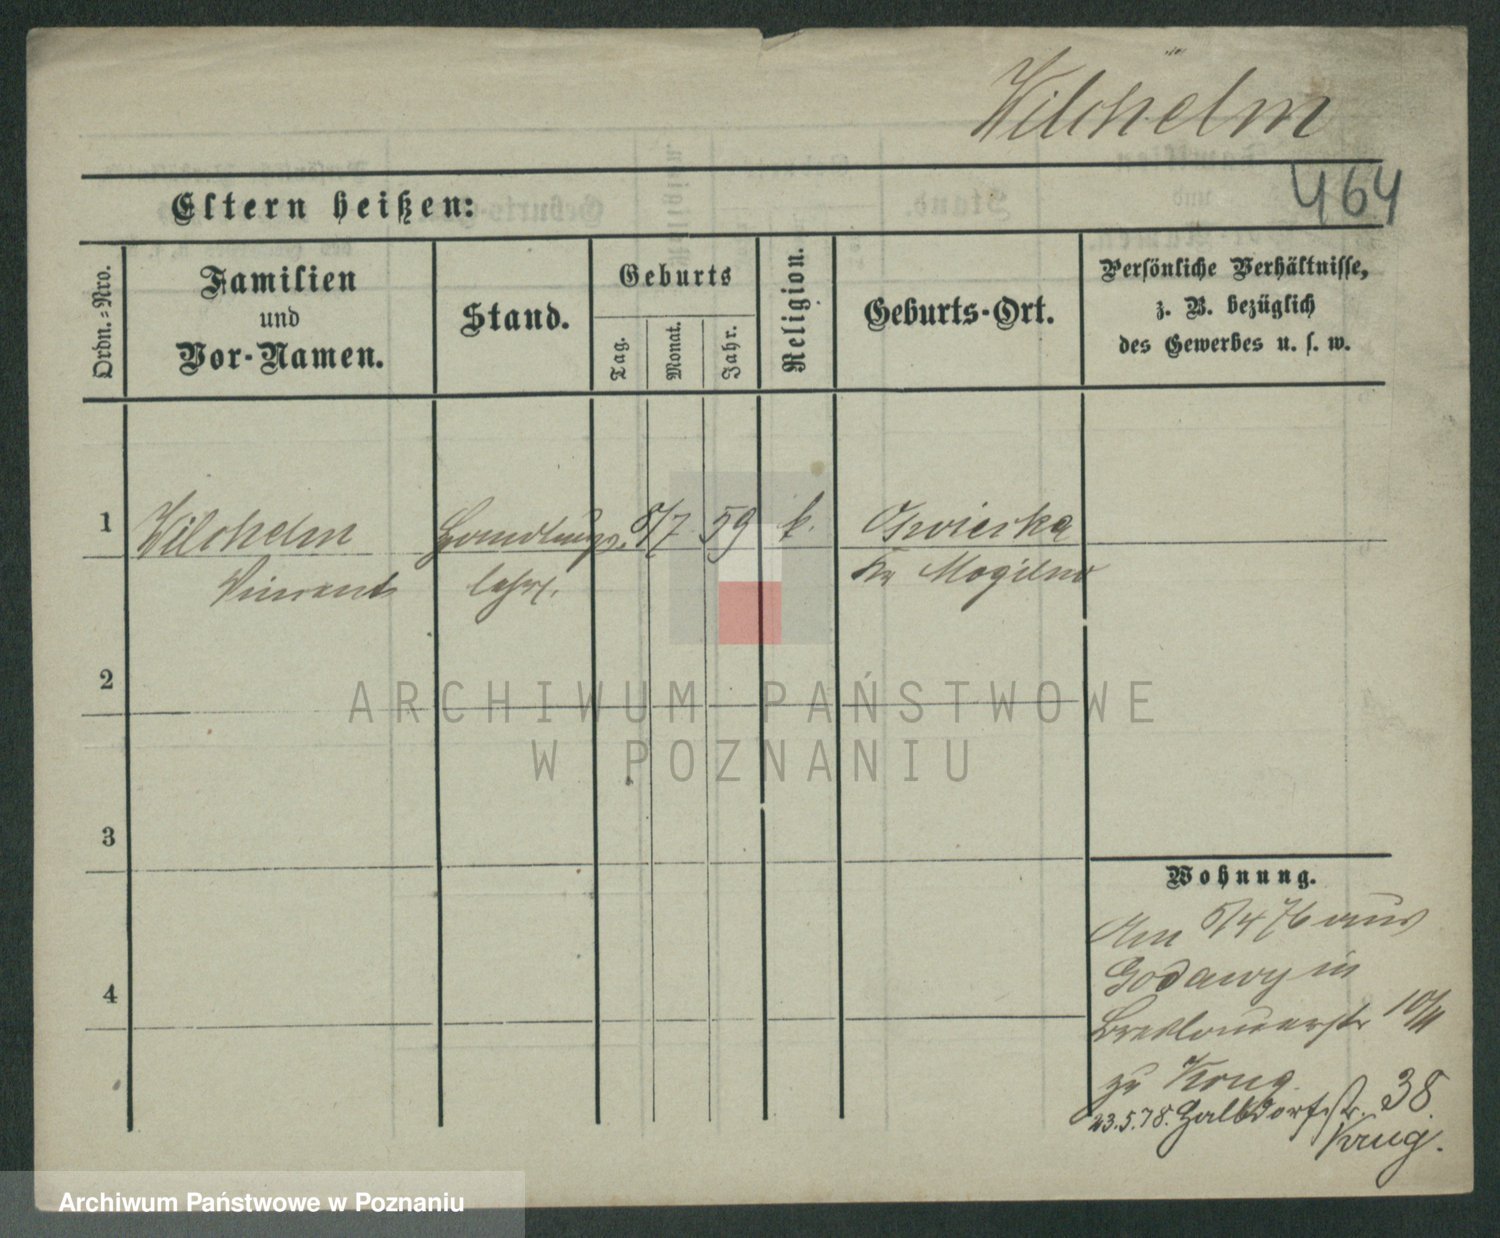 Wilchelm
464
Eltern heißen:
Ordn.=Nro.
Familien
und
Vor-Namen.
Stand.
Geburts
Tag.
Monat.
Jahr.
Religion.
Geburts-Ort.
Persönliche Verhältnisse,
z. B. bezüglich
des Gewerbes u. s. w.
1
Wilchelm Handlungs. 5/7 59 k.
Vincent lehrl. Kr Mogilno
2
ARCHIWUM PAŃSTWOWE
W POZNANIU
3
Wohnung.
Am 5/4 76 aus
4
Godawy in
Breslauerstr 10/11
zu Krug.
23.5.78. Halbdorfstr. 38.
Krug.
Archiwum Państwowe w Poznaniu